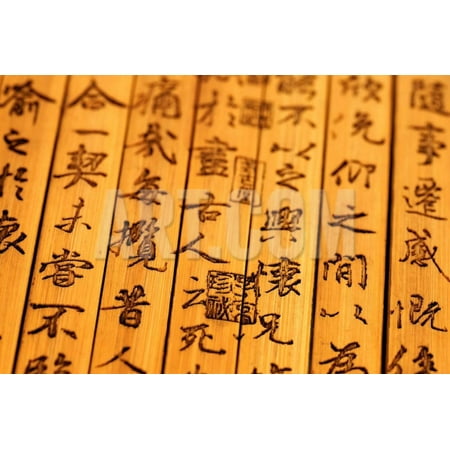 隨事遷感慨係
欣俛仰之間以為
能不以之興懷況
於盡古人云死
痛哉每攬昔人
合一契未嘗不
喻之於懷
ART.COM